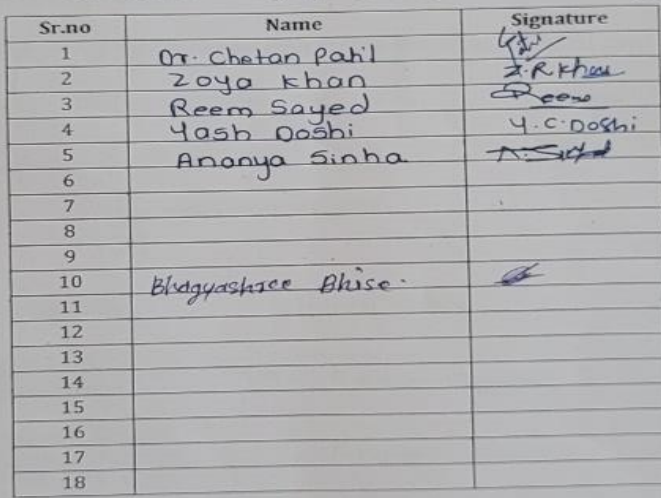 Sr.no Name Signature
1 Dr. Chetan Patil
2 Zoya Khan Z.R Khan
3 Reem Sayed Reem
4 Yash Doshi Y.C.Doshi
5 Ananya Sinha
6
7
8
9
10 Bhagyashree Bhise.
11
12
13
14
15
16
17
18